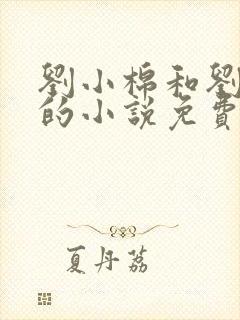 劉小棉和劉
的小說免費
夏丹荔